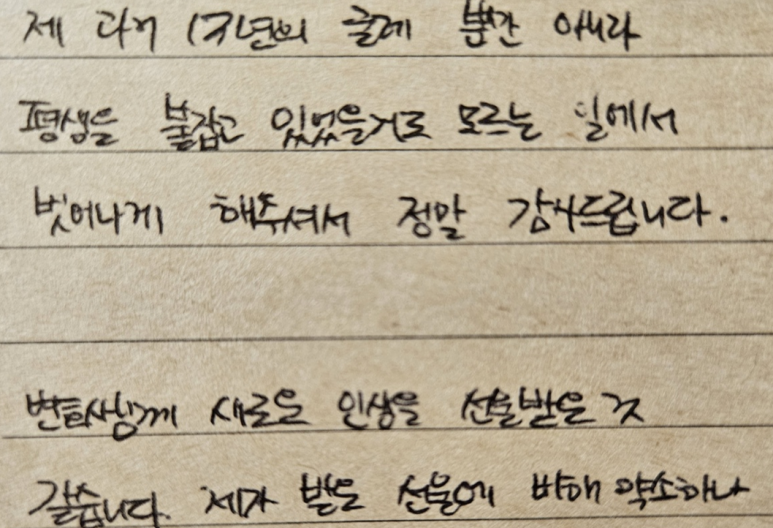 제 과거 17년의 굴레 뿐만 아니라
평생을 붙잡고 있었을거로 모르는 일에서
벗어나게 해주셔서 정말 감사드립니다.
변호사님께 새로운 인생을 선물받은 것
같습니다. 제가 받은 선물에 비해 약소하나